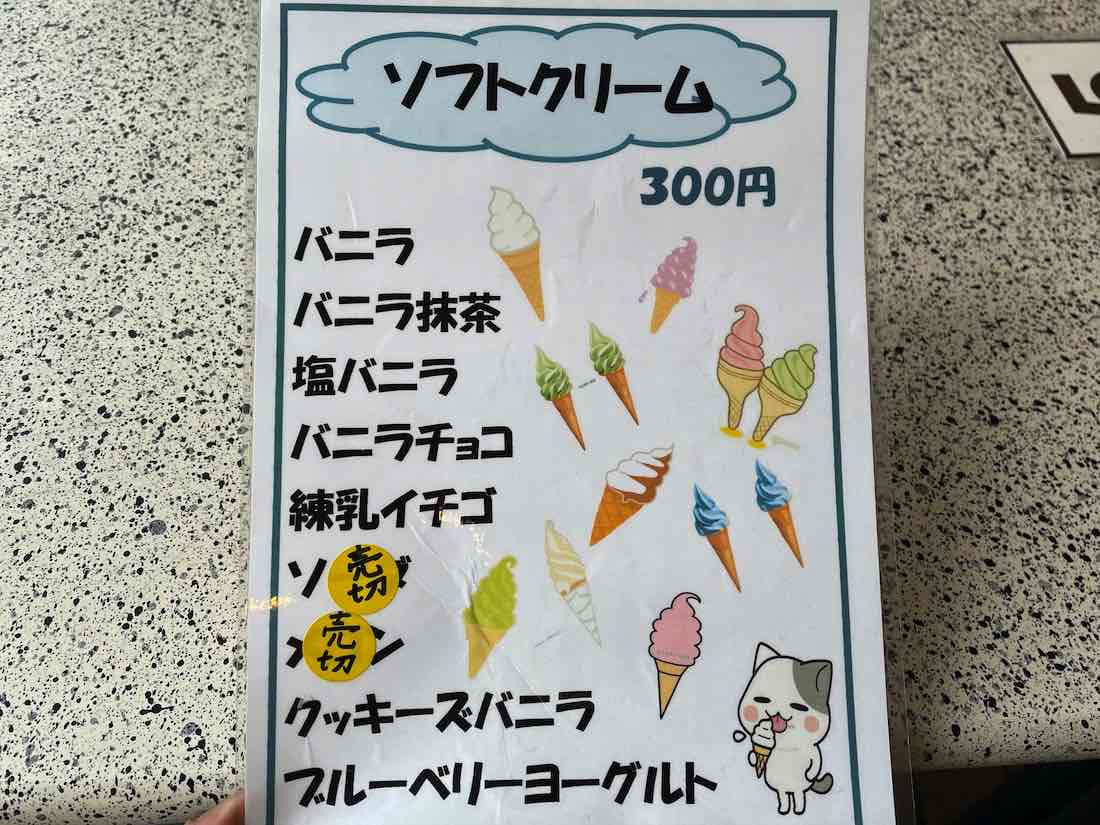 ソフトクリーム
300円
バニラ
バニラ抹茶
塩バニラ
バニラチョコ
練乳イチゴ
売切
売切
クッキーズバニラ
ブルーベリーヨーグルト